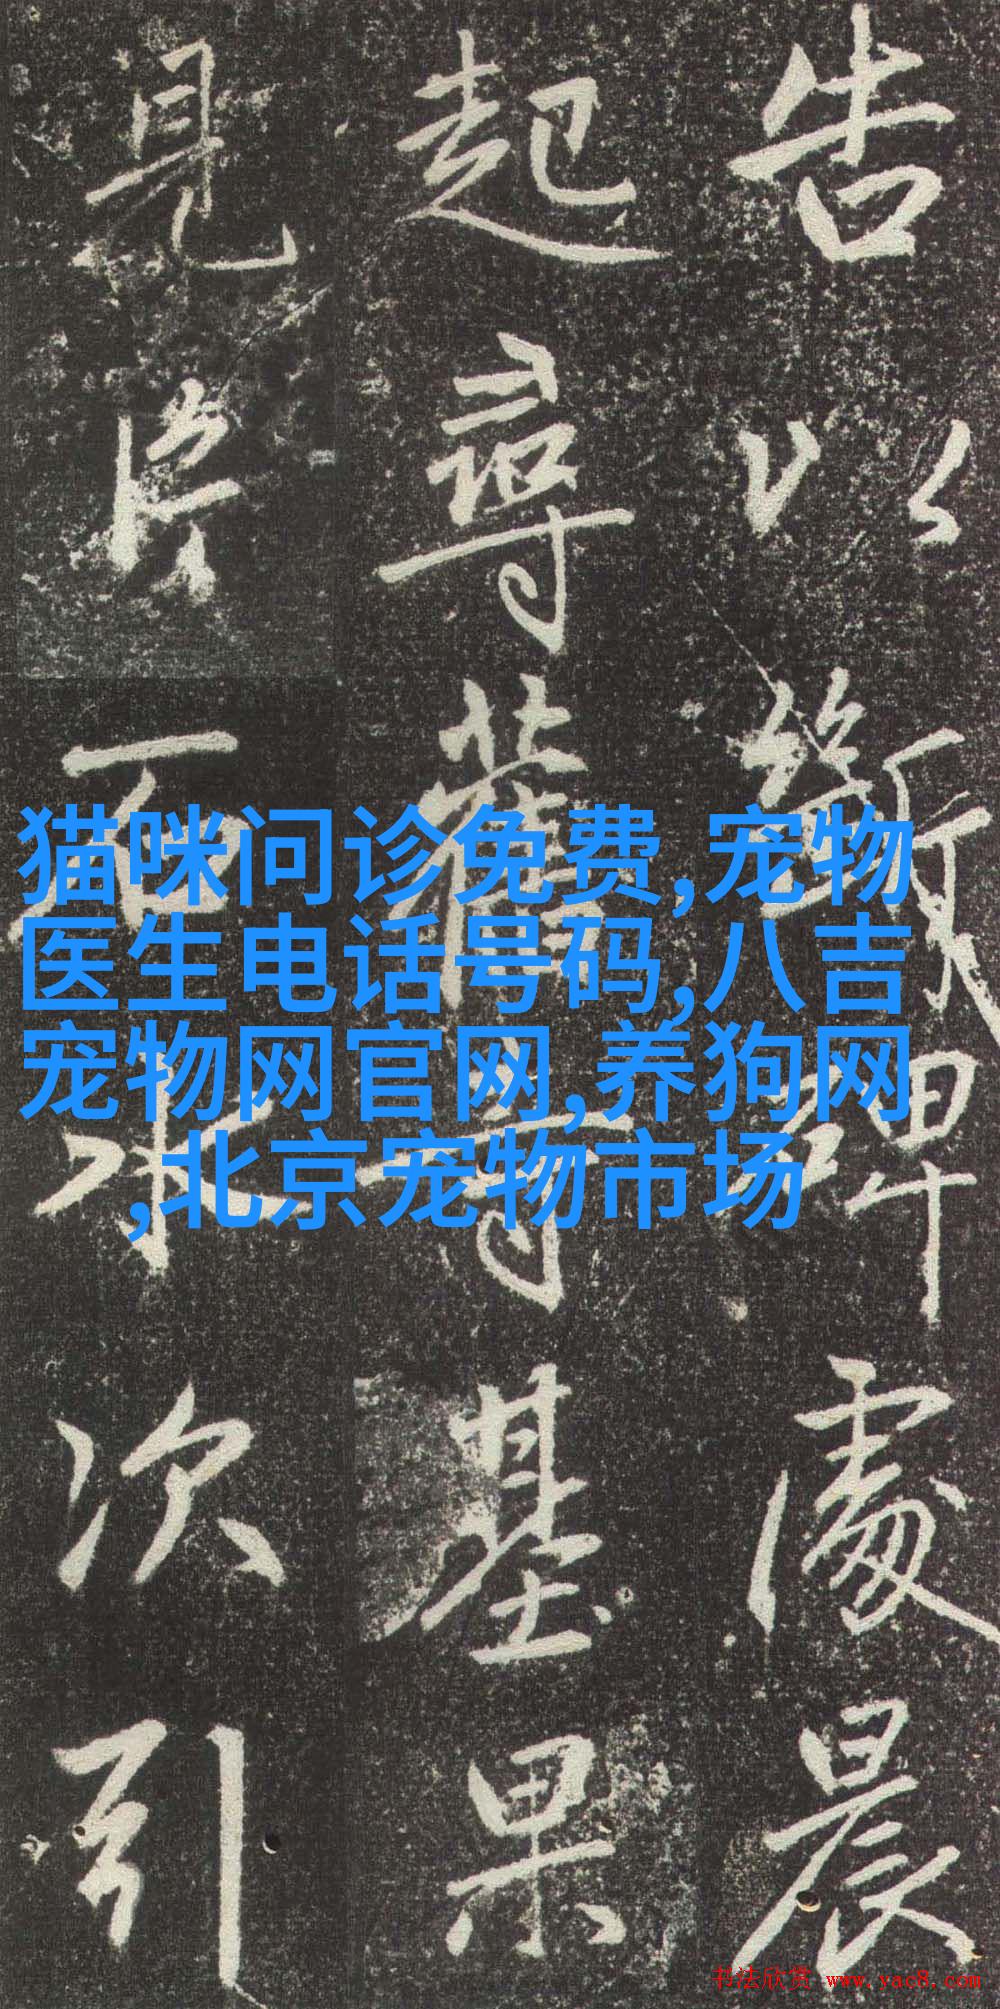 告以鑿碑處晨
起尋舊普基果
見片石水次引
猫咪问诊免费,宠物
医生电话号码,八吉
宠物网官网,养狗网
,北京宠物市场
书法欣赏 www.yac8.com